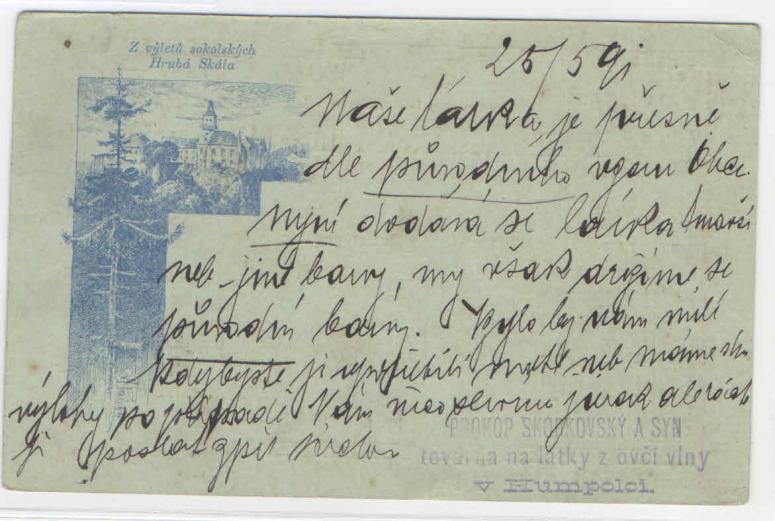 Z výletů sokolských
Hrubá Skála
25/5 91
Naše látka je přesně
dle původního vzoru Obec.
nyní dodává se látka tmavší
neb jiné barvy, my však držíme se
původní barvy. Bylo by nám milé
kdybyste ji upotřebili neb máme
výlohy po případě Vám
ji poslat zpět
PROKOP SKORKOVSKÝ A SYN
továrna na látky z ovčí vlny
v Humpolci.